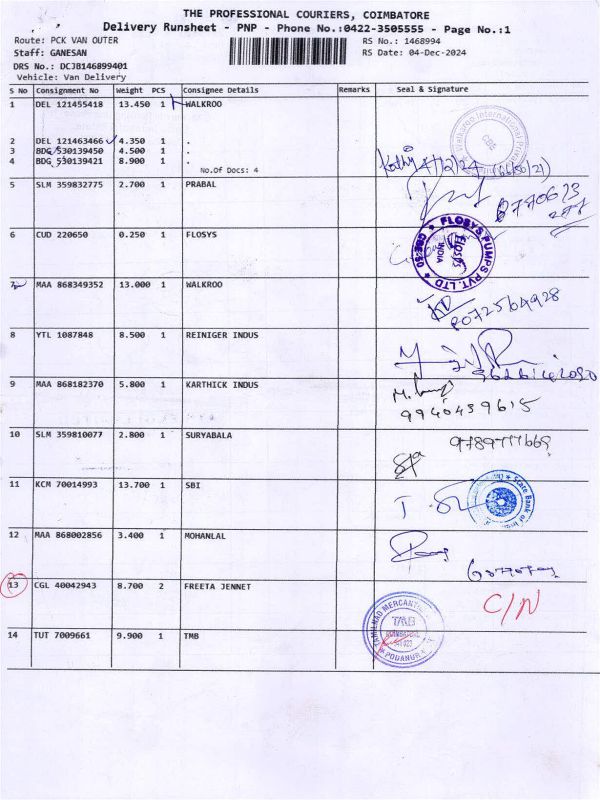 THE PROFESSIONAL COURIERS, COIMBATORE
Delivery Runsheet - PNP - Phone No.:0422-3505555 - Page No.:1
Route: PCK VAN OUTER RS No.: 1468994
Staff: GANESAN RS Date: 04-Dec-2024
DRS No.: DCJB146899401
Vehicle: Van Delivery
S No Consignment No Weight PCS Consignee Details Remarks Seal & Signature
1 DEL 121455418 13.450 1 WALKROO
2 DEL 121463466 4.350 1 .
3 BDG 530139450 4.500 1 .
4 BDG 530139421 8.900 1 .
No.Of Docs: 4
5 SLM 359832775 2.700 1 PRABAL
6 CUD 220650 0.250 1 FLOSYS
FLOSYS PUMPS PVT. LTD
FLOSYS
INDIA
7 MAA 868349352 13.000 1 WALKROO
8072564928
8 YTL 1087848 8.500 1 REINIGER INDUS
9 MAA 868182370 5.800 1 KARTHICK INDUS
9940439615
10 SLM 359810077 2.800 1 SURYABALA
11 KCM 70014993 13.700 1 SBI
State Bank of
12 MAA 868002856 3.400 1 MOHANLAL
13 CGL 40042943 8.700 2 FREETA JENNET C/N
14 TUT 7009661 9.900 1 TMB
TAMILNAD MERCANTILE
TMB
COIMBATORE
PODANUR